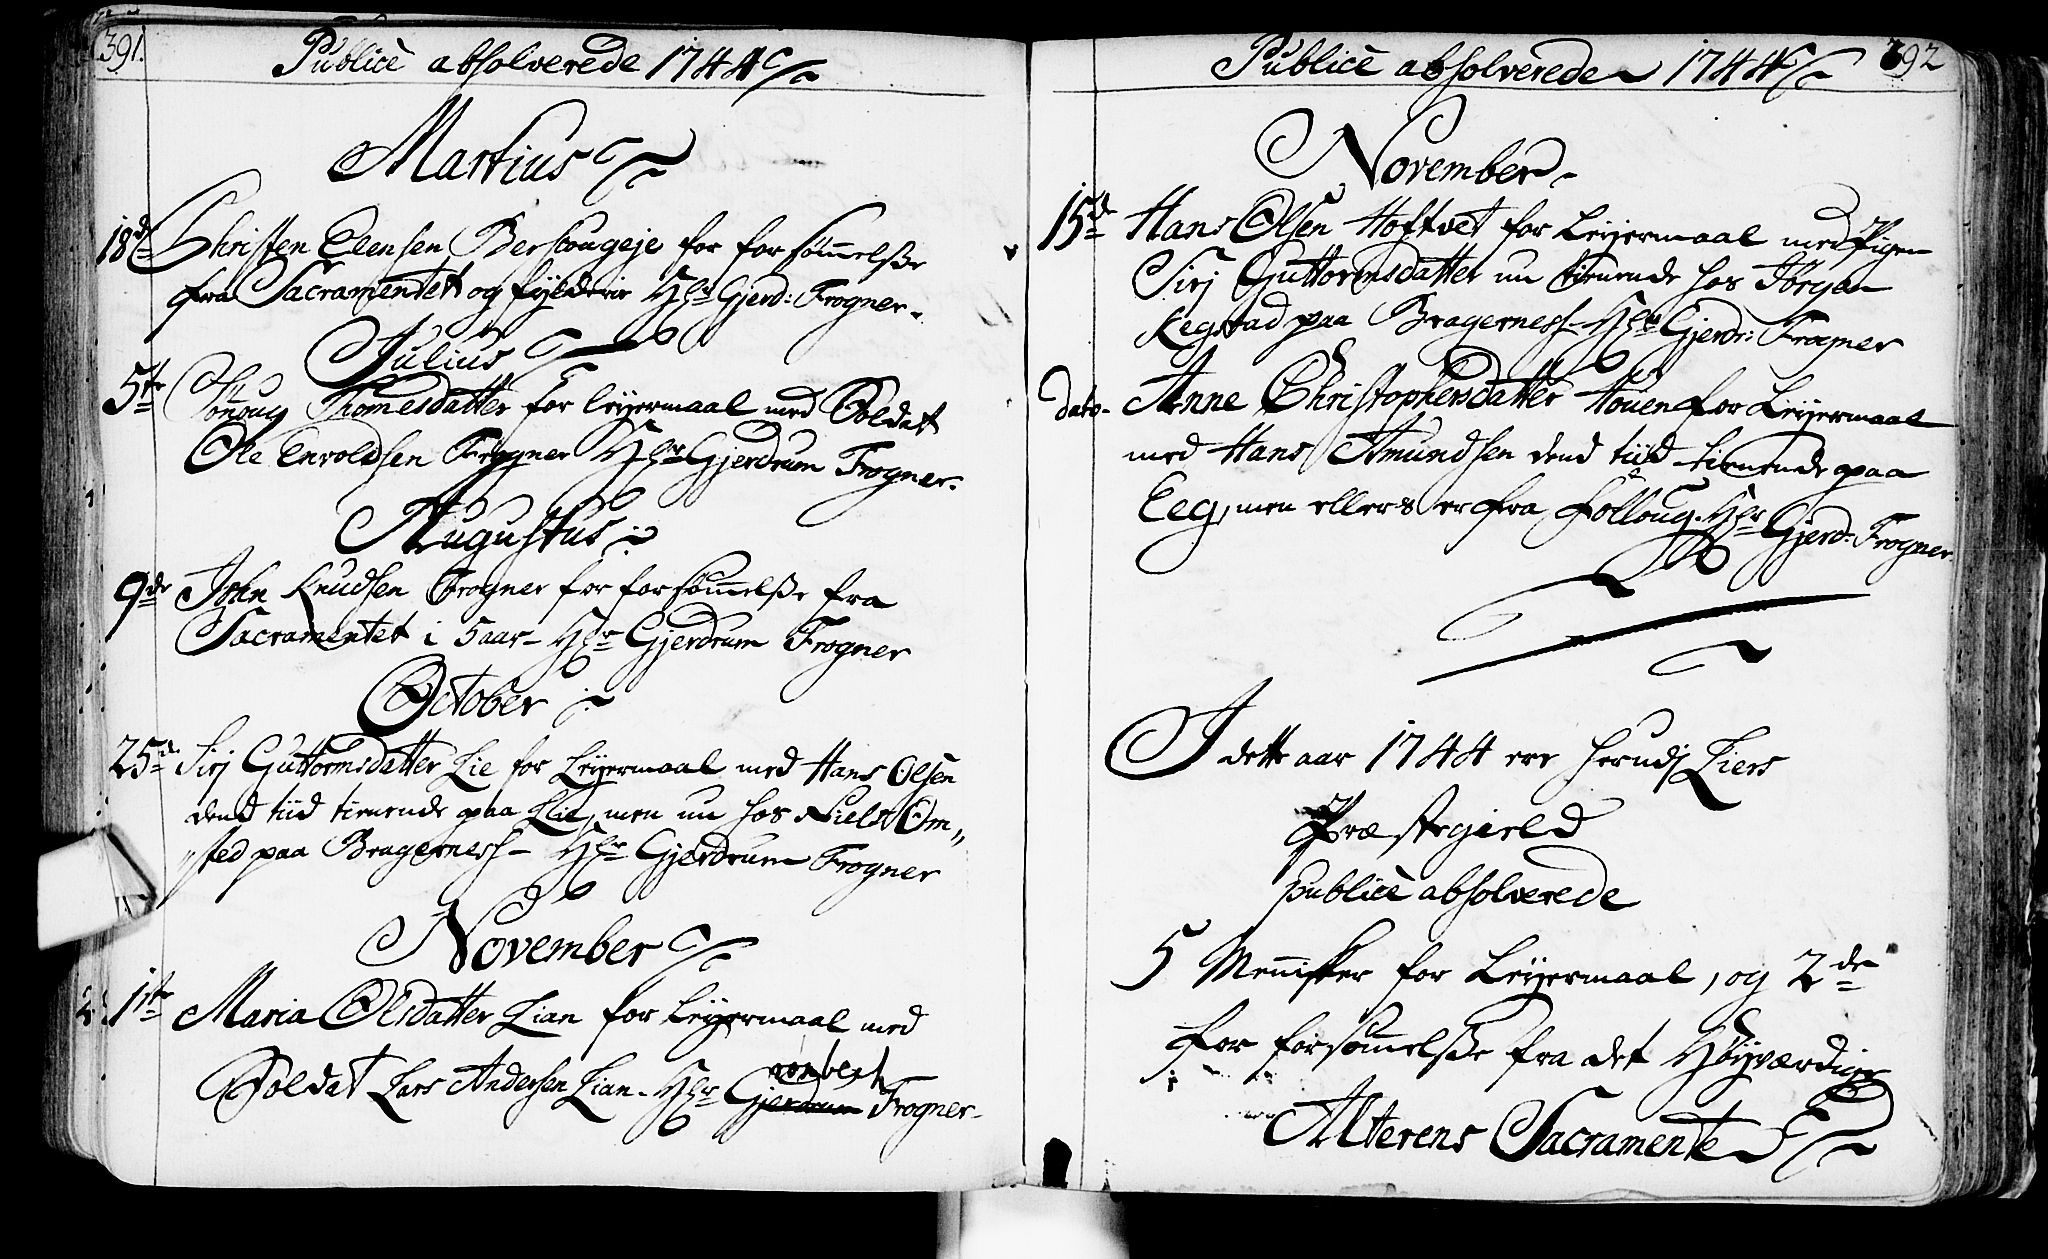 391.
Publicè absolverede 1744
Martius
18d Christen Eensen Berskougeje for forsømelsse
fra Sacramentet og fylderie Hr Gjerd: Frogner.
Julius
5te Thomesdatter for leyermaal med Soldat
Ole Envoldsen Frogner Hr Gjerdrum Frogner.
Augustus
9de John Knudsen Frogner for forsømelsse fra
Sacramentet i 5 aar - Hr Gjerdrum Frogner
October
25d. Sirj Guttormsdatter Lie for Leyermaal med Hans Olsen
dend tiid tienende paa Lie, men nu hos Niels Om„
„sted paa Bragerness - Hr Gjerdrum Frogner
November
11te Maria Olsdatter Lian for Leyermaal med
Soldat Lars Andersen Lian. Hr Gjerdrum Frogner-
392
Publicè absolverede 1744
November
15d Hans Olsen Hoftvet for Leyermaal med Pigen
Sirj Guttormsdatter nu tienende hos Jørgen
Kegstad paa Bragerness - Hr Gjerdr: Frogner
dato- Anne Christophersdatter Houen for Leyermaal
med Hans Amundsen dend tiid tienende paa
Eeg, men ellers er fra Folloug. Hr Gjerd. Frogner.
I dette aar 1744 ere herudj Liers
Præstegield
publicè absolverede
5 Meniskер for Leyermaal, og 2de
for forsømelsse fra det Høyværdige
Alterens Sacramente